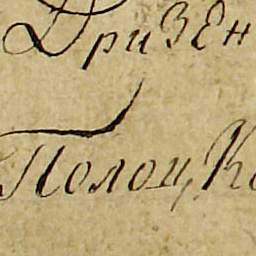 Дризен
Полоцк